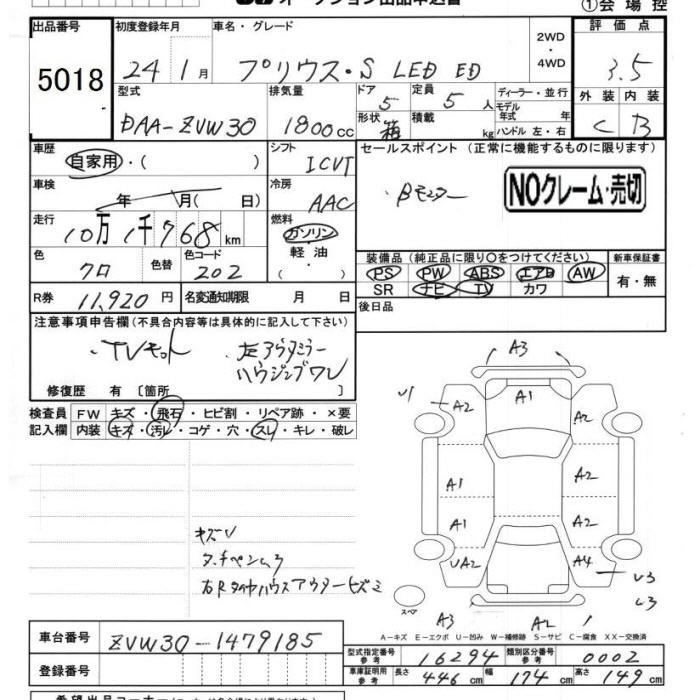 オークション出品申込書
①会場控
出品番号 初度登録年月 車名・グレード 2WD・4WD 評価点
5018 24 1月 プリウス・S LED ED 3.5
型式 排気量 ドア 5 定員 5人 ディーラー・並行 外装 内装
DAA-ZVW30 1800cc 形状 箱 積載 kg モデル年式 年 ハンドル 左・右 C B
車歴 自家用・( ) シフト ICVT セールスポイント (正常に機能するものに限ります)
車検 年 月( 日) 冷房 AAC βモニター NOクレーム・売切
走行 10万1千768km 燃料 ガソリン・軽油・( )
色 クロ 色替 色コード 202
装備品 (純正品に限り○をつけてください) 新車保証書
PS PW ABS エアB AW 有・無
SR ナビ TV カワ
R券 11,920円 名変通知期限 月 日 後日品
注意事項申告欄 (不具合内容等は具体的に記入して下さい)
・TVキット 左アウタミラー
ハウジングワレ
修復歴 有 〔箇所 〕
検査員 FW キズ・飛石・ヒビ割・リペア跡・×要
記入欄 内装 キズ・汚レ・コゲ・穴・スレ・キレ・破レ
A3
U1 A2 A1 A2
A1 A2
A1 A2
UA2 A4 U3
スペア A3 A2
キズU
右Rタイヤハウスアウターヒズミ
A-キズ E-エクボ U-凹み W-補修跡 S-サビ C-腐食 XX-交換済
車台番号 ZVW30-1479185
型式指定番号 参考 16294 類別区分番号 参考 0002
登録番号 車庫証明用 参考 長さ 446cm 幅 174cm 高さ 149cm